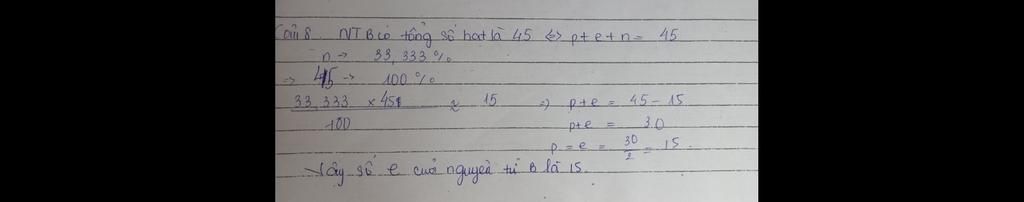 Câu 8. NT B có tổng số hạt là 45 <=> p+e+n = 45
n -> 33,333 %
=> 45 -> 100 %
33,333 x 45 / 100 ≈ 15 => p+e = 45 - 15
p+e = 30
p = e = 30/2 = 15.
Vậy số e của nguyên tử B là 15.